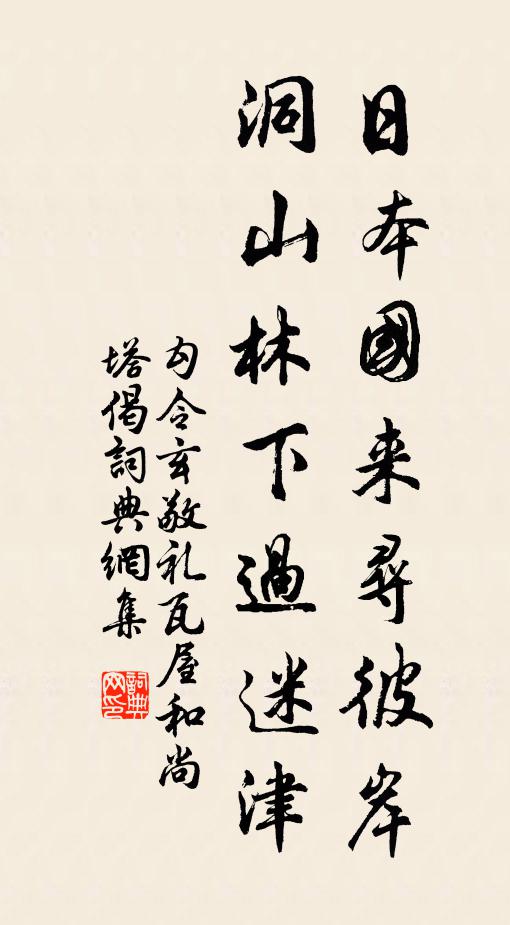 日本國来尋彼岸
洞山林下過迷津
勾令玄敬礼瓦屋和尚
塔偈詞典網集
詞典
网印